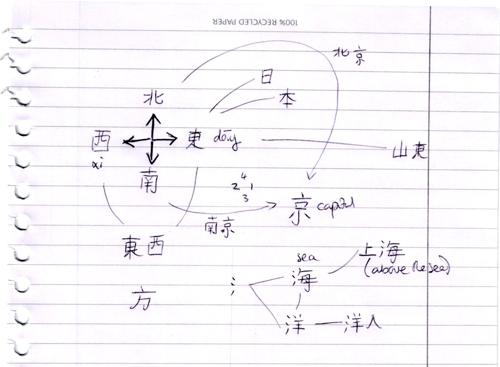 100% RECYCLED PAPER
北京
日
本
北
西 東 dōng
xi
山東
南
4
2 1
3
京 capital
南京
東西
sea
上海
(above the sea)
氵 海
方
洋 洋人